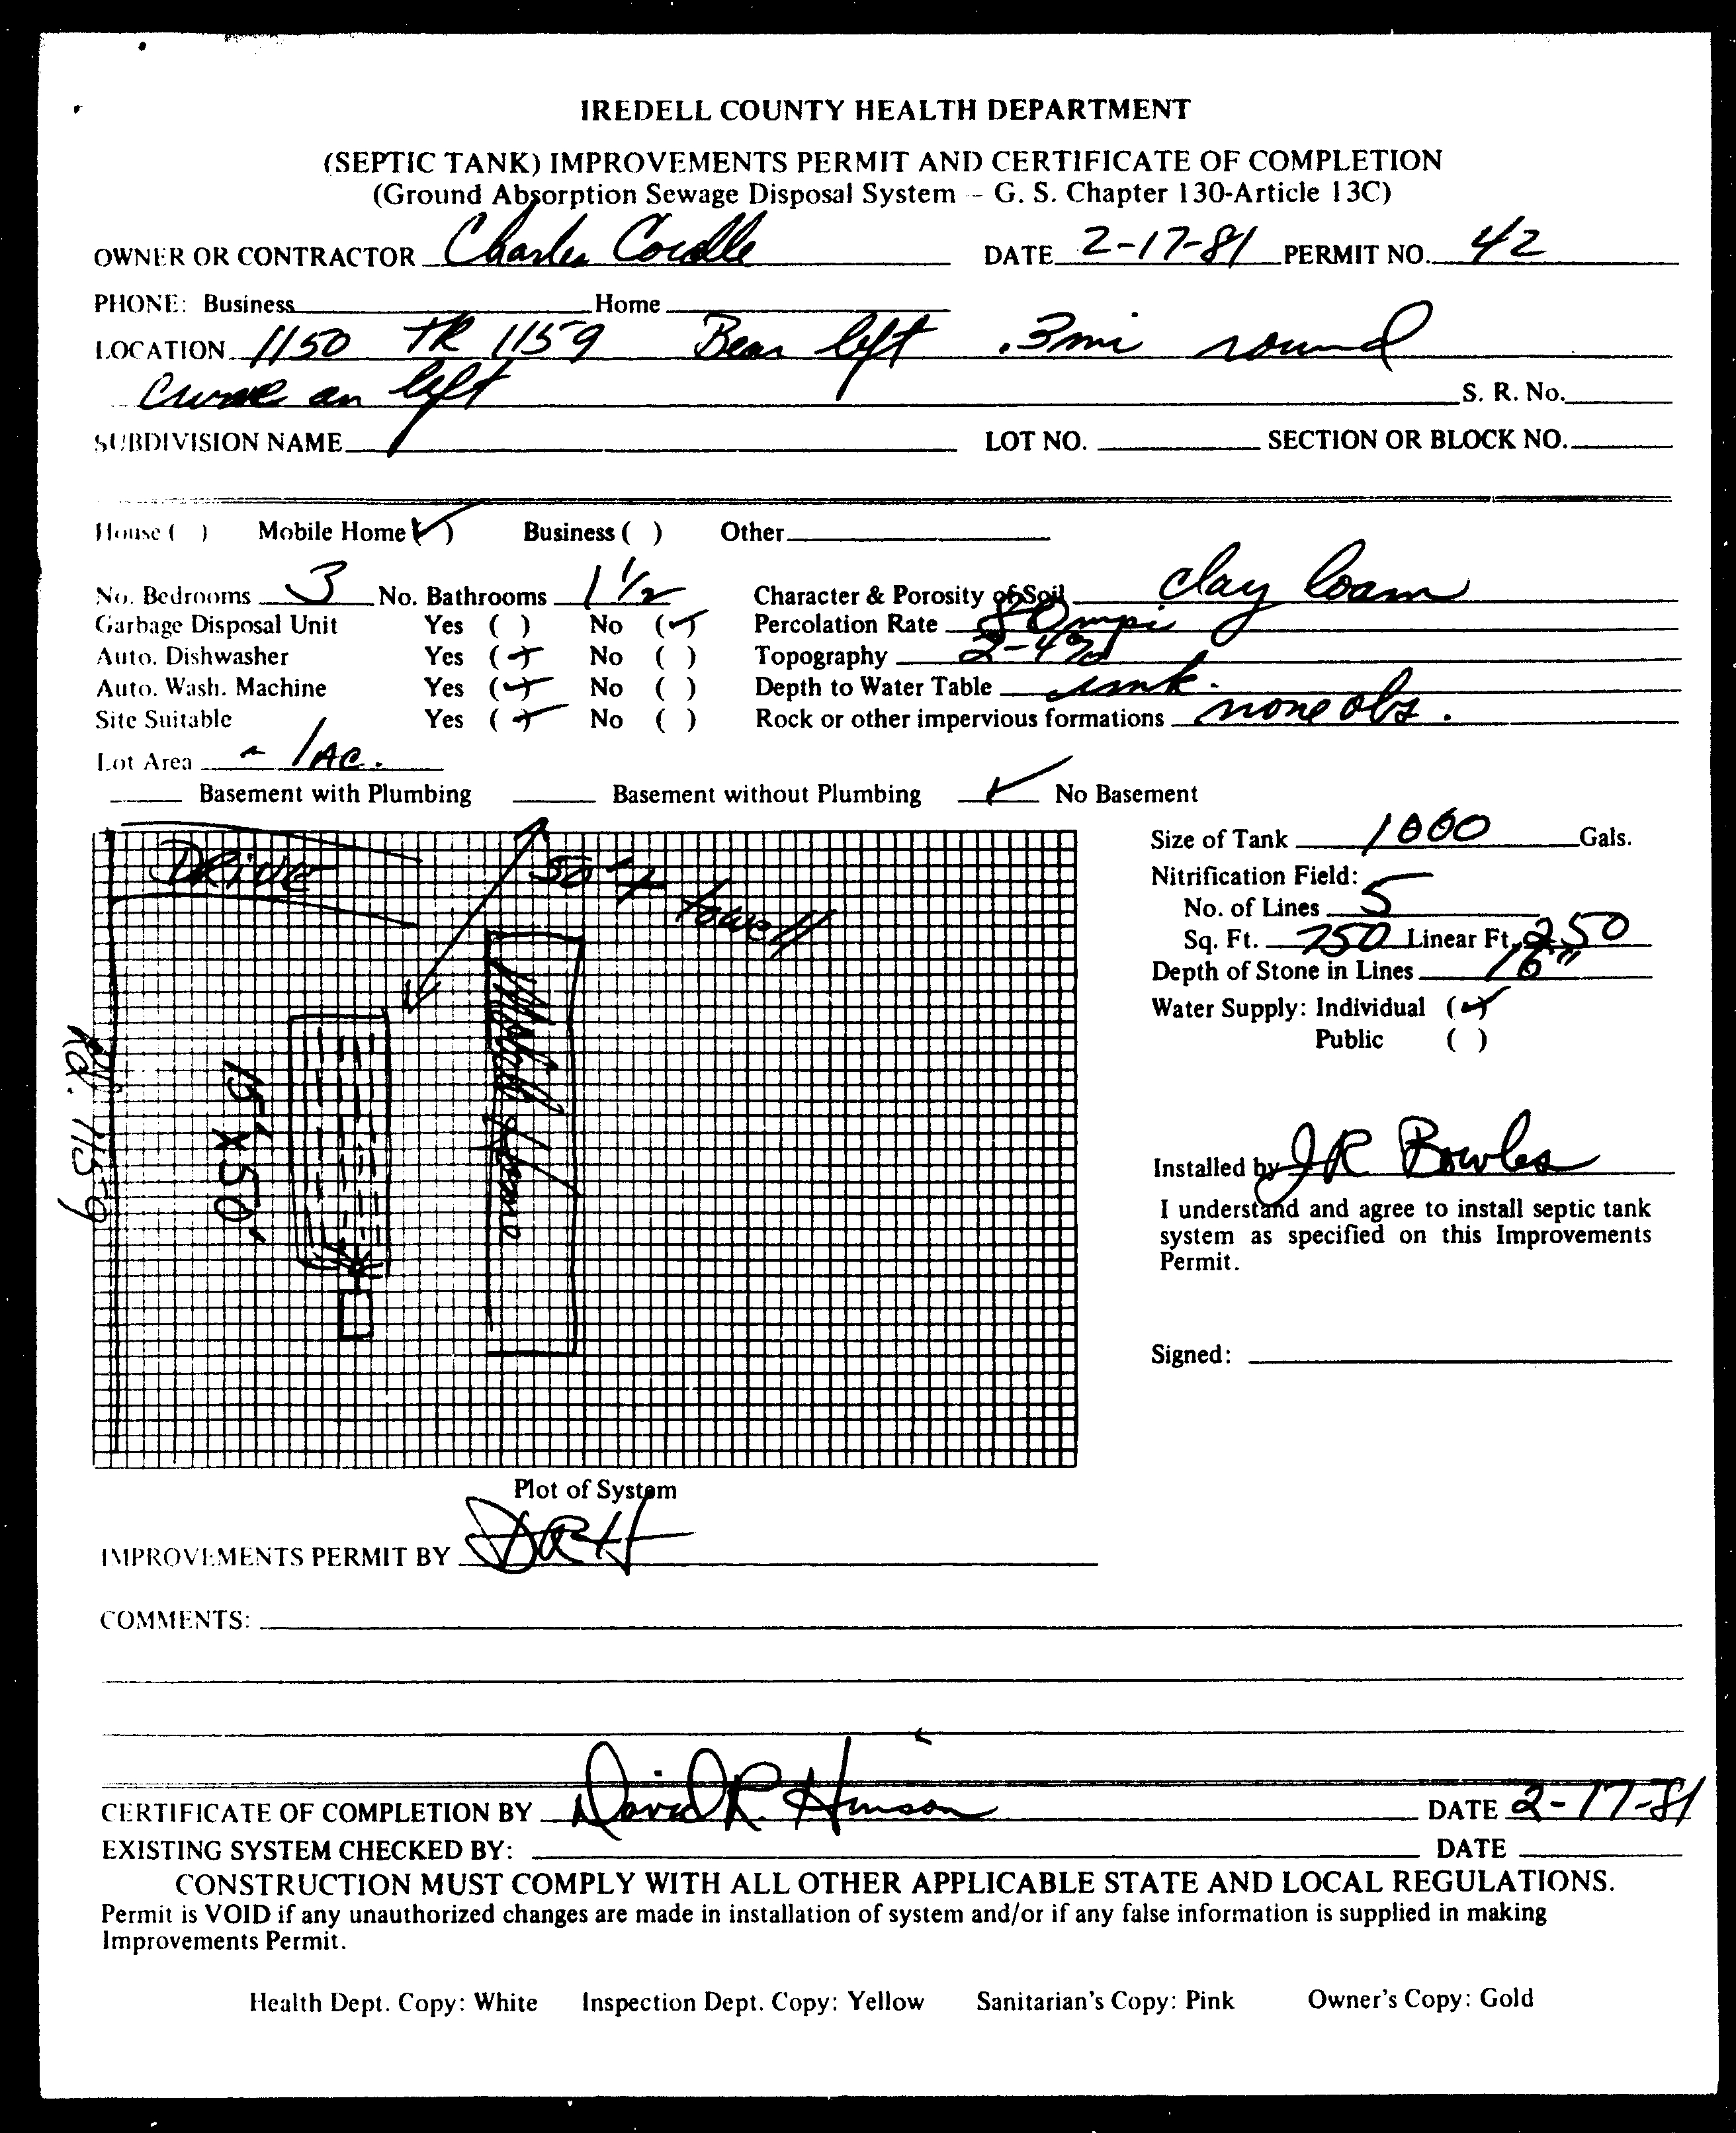 IREDELL COUNTY HEALTH DEPARTMENT
(SEPTIC TANK) IMPROVEMENTS PERMIT AND CERTIFICATE OF COMPLETION
(Ground Absorption Sewage Disposal System -- G. S. Chapter 130-Article 13C)
OWNER OR CONTRACTOR Charles DATE 2-17-81 PERMIT NO. 42
PHONE: Business Home
LOCATION 1150 TR 1159 Bear left .3mi round
curve on left S. R. No.
SUBDIVISION NAME LOT NO. SECTION OR BLOCK NO.
House ( ) Mobile Home (✓) Business ( ) Other
No. Bedrooms 3 No. Bathrooms 1 1/2 Character & Porosity of Soil clay loam
Garbage Disposal Unit Yes ( ) No (✓) Percolation Rate 80 mpi
Auto. Dishwasher Yes (✓) No ( ) Topography 2-4%
Auto. Wash. Machine Yes (✓) No ( ) Depth to Water Table unk.
Site Suitable Yes (✓) No ( ) Rock or other impervious formations none obs.
Lot Area ~ 1 AC.
Basement with Plumbing Basement without Plumbing ✓ No Basement
Size of Tank 1000 Gals.
Nitrification Field:
No. of Lines 5
Sq. Ft. 750 Linear Ft. 250
Depth of Stone in Lines 16"
Water Supply: Individual (✓)
Public ( )
Drive
50'+ to well
Mobile Home
15' X 50'
Rd. 1159
Installed by JR Bowles
I understand and agree to install septic tank
system as specified on this Improvements
Permit.
Signed:
Plot of System
IMPROVEMENTS PERMIT BY DRH
COMMENTS:
CERTIFICATE OF COMPLETION BY David R. Hinson DATE 2-17-81
EXISTING SYSTEM CHECKED BY: DATE
CONSTRUCTION MUST COMPLY WITH ALL OTHER APPLICABLE STATE AND LOCAL REGULATIONS.
Permit is VOID if any unauthorized changes are made in installation of system and/or if any false information is supplied in making
Improvements Permit.
Health Dept. Copy: White Inspection Dept. Copy: Yellow Sanitarian's Copy: Pink Owner's Copy: Gold